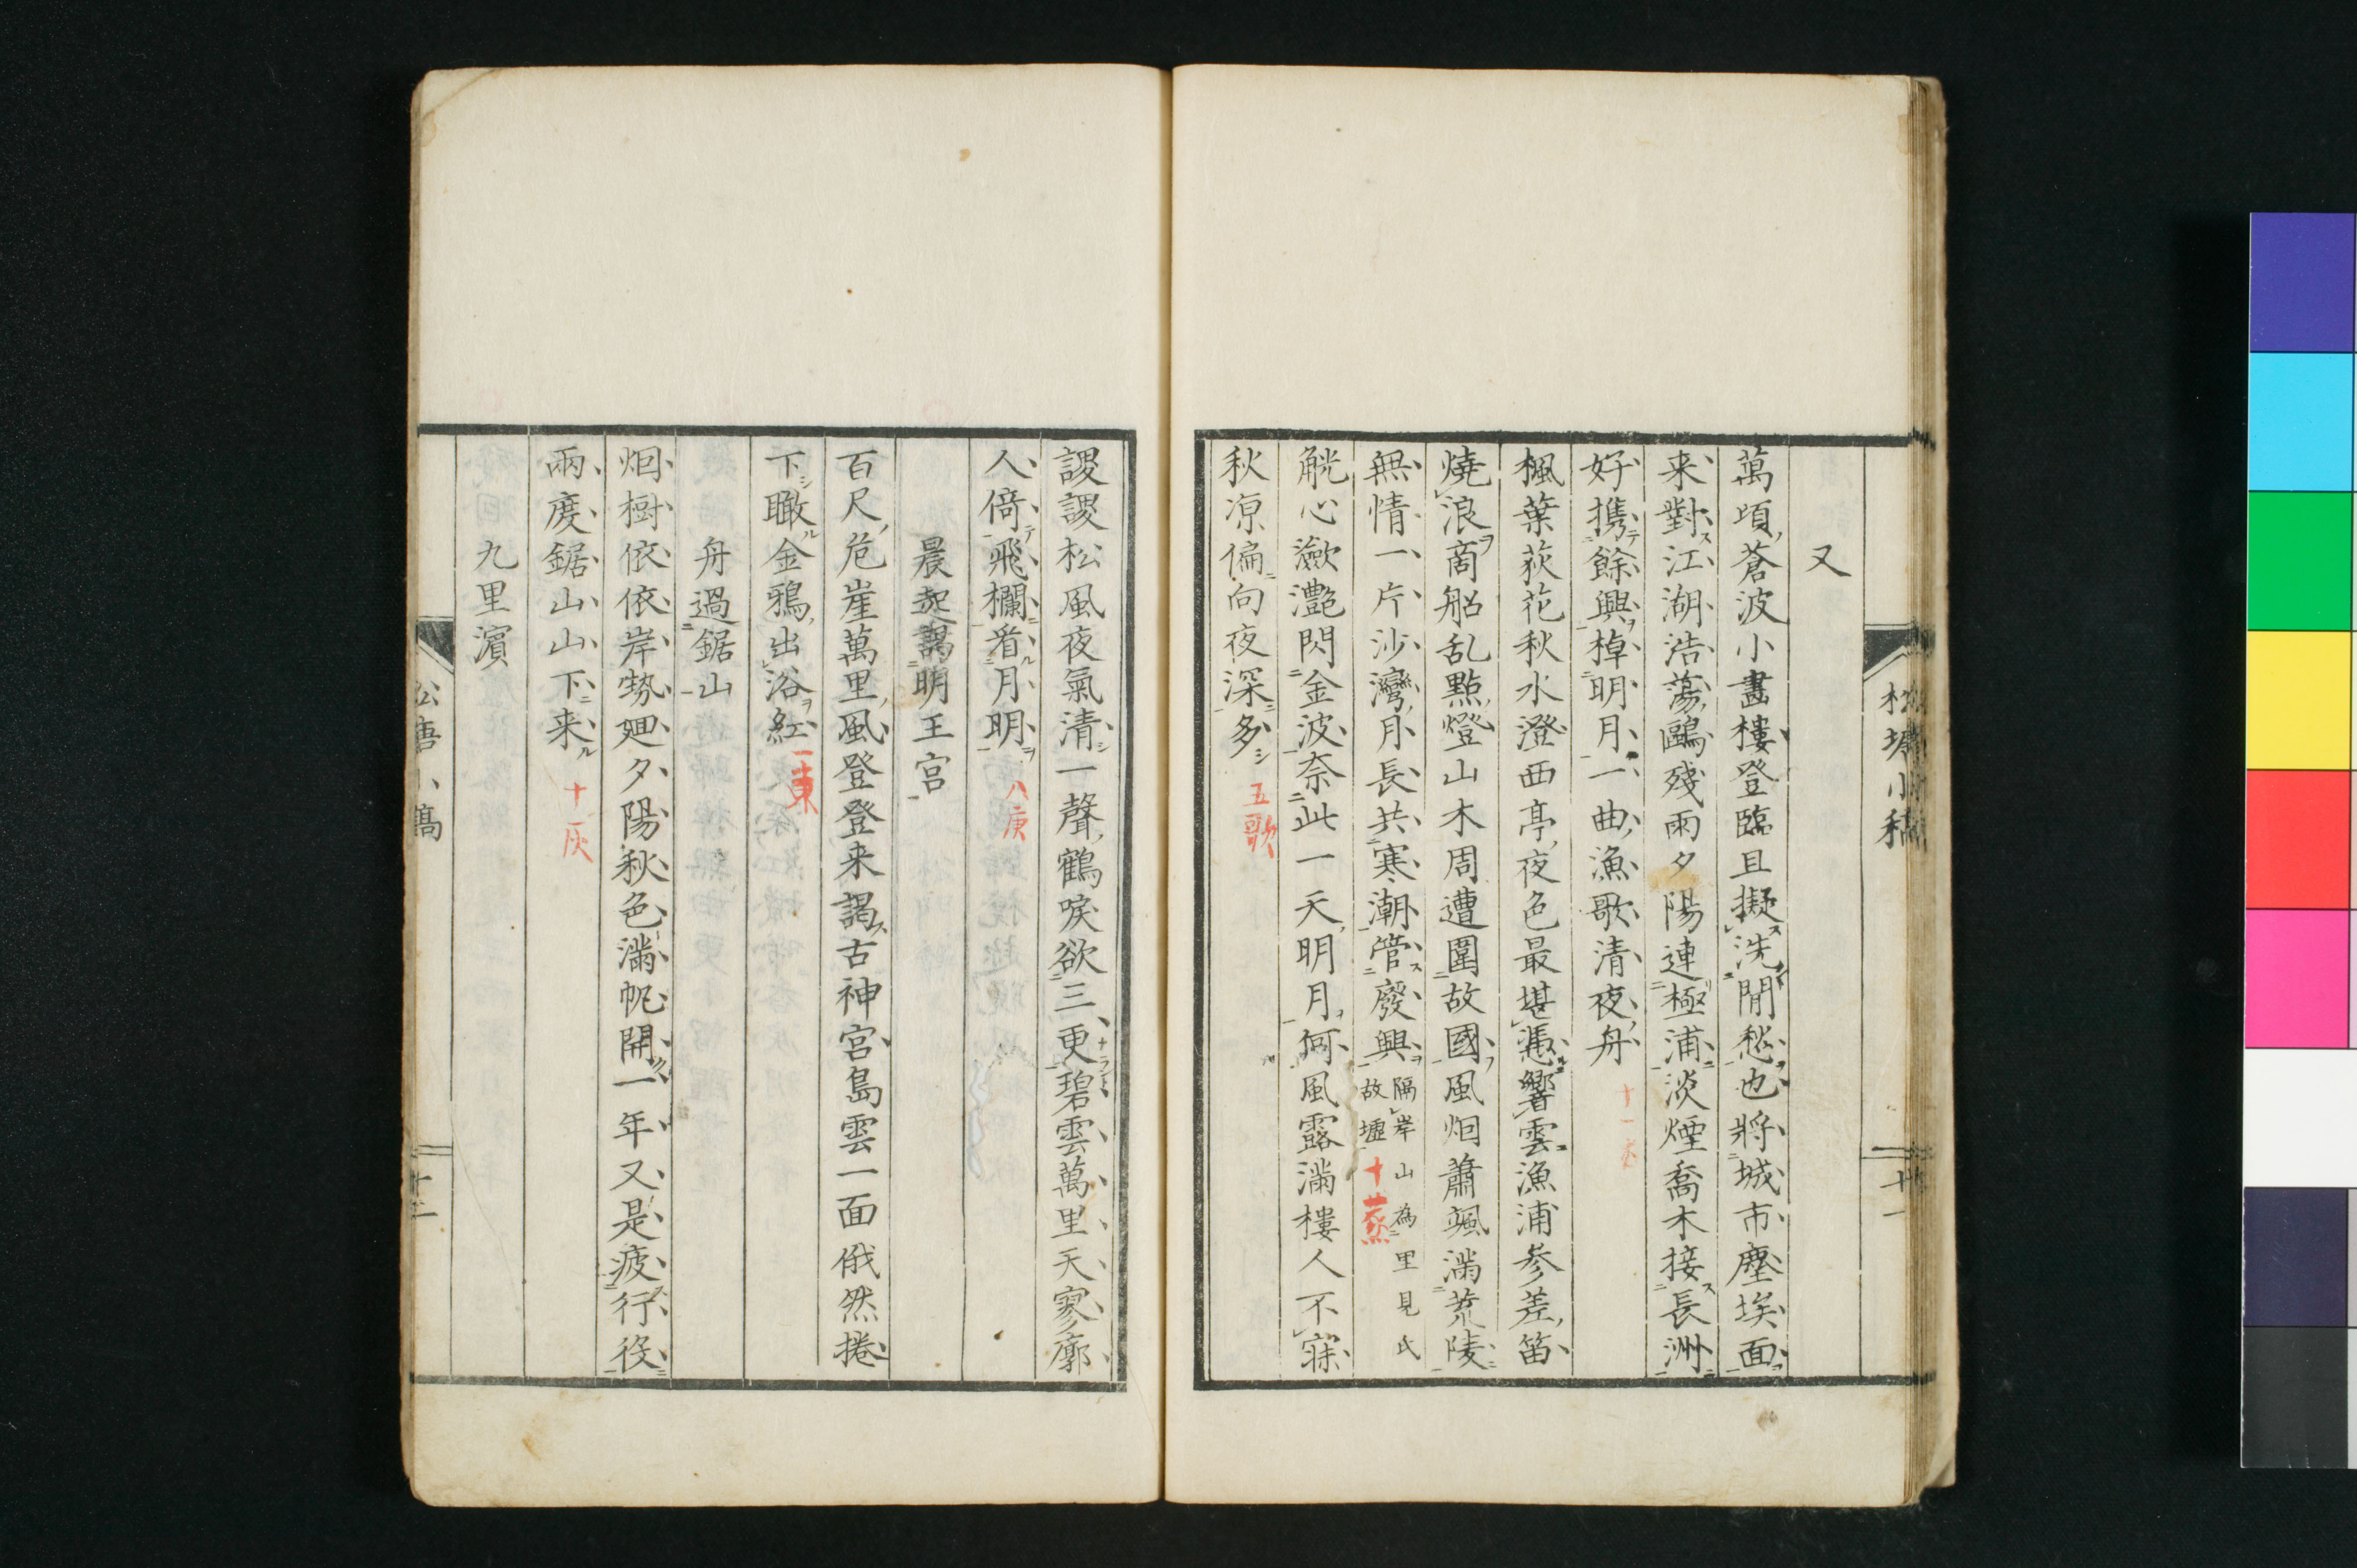 松塘小稿
十一
又
萬頃蒼波小畵樓登臨且擬洗閒愁也將城市塵埃面
来對江湖浩蕩鷗殘雨夕陽連極浦淡煙喬木接長洲
好携餘興棹明月一曲漁歌清夜舟
楓葉荻花秋水澄西亭夜色最堪凴響雲漁浦参差笛
燒浪商船乱點燈山木周遭圍故國風烟蕭颯滿荒陵
無情一片沙灣月長共寒潮管廢興 隔岸山為里見氏
故墟 十蒸
觥心瀲灔閃金波奈此一天明月何風露滿樓人不寐
秋凉偏向夜深多 五歌
謖謖松風夜氣清一聲鶴唳欲三更碧雲萬里天寥廓
人倚飛欄看月明 八庚
晨起謁明王宮
百尺危崖萬里風登登来謁古神宮島雲一面俄然捲
下瞰金鴉出浴紅 一東
舟過鋸山
烟樹依依岸勢廻夕陽秋色滿帆開一年又是疲行役
兩度鋸山山下来 十灰
九里濱
松塘小稿
十二